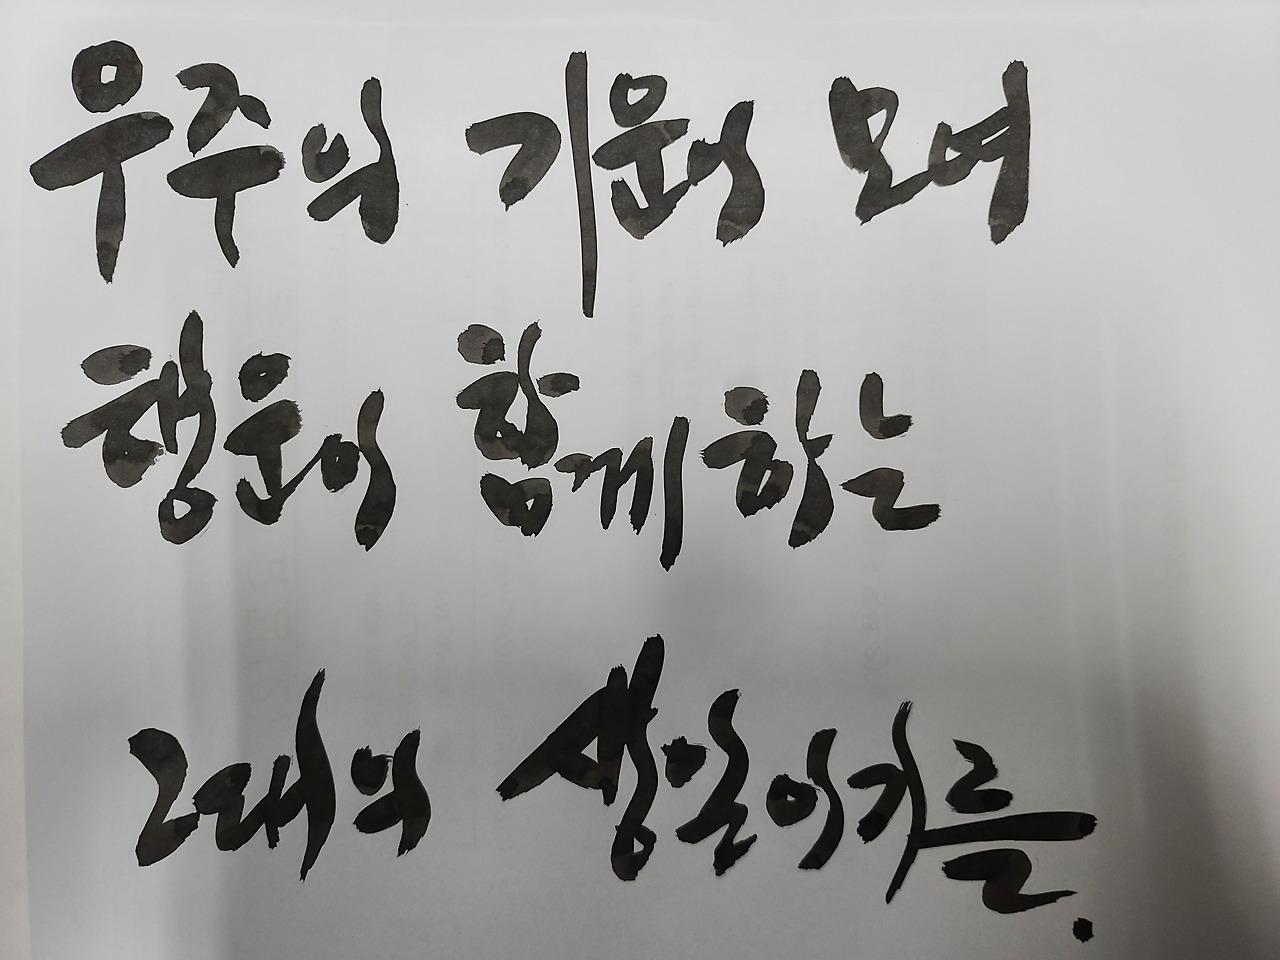 우주의 기운이 모여
행운이 함께 하는
그대의 생일이기를.